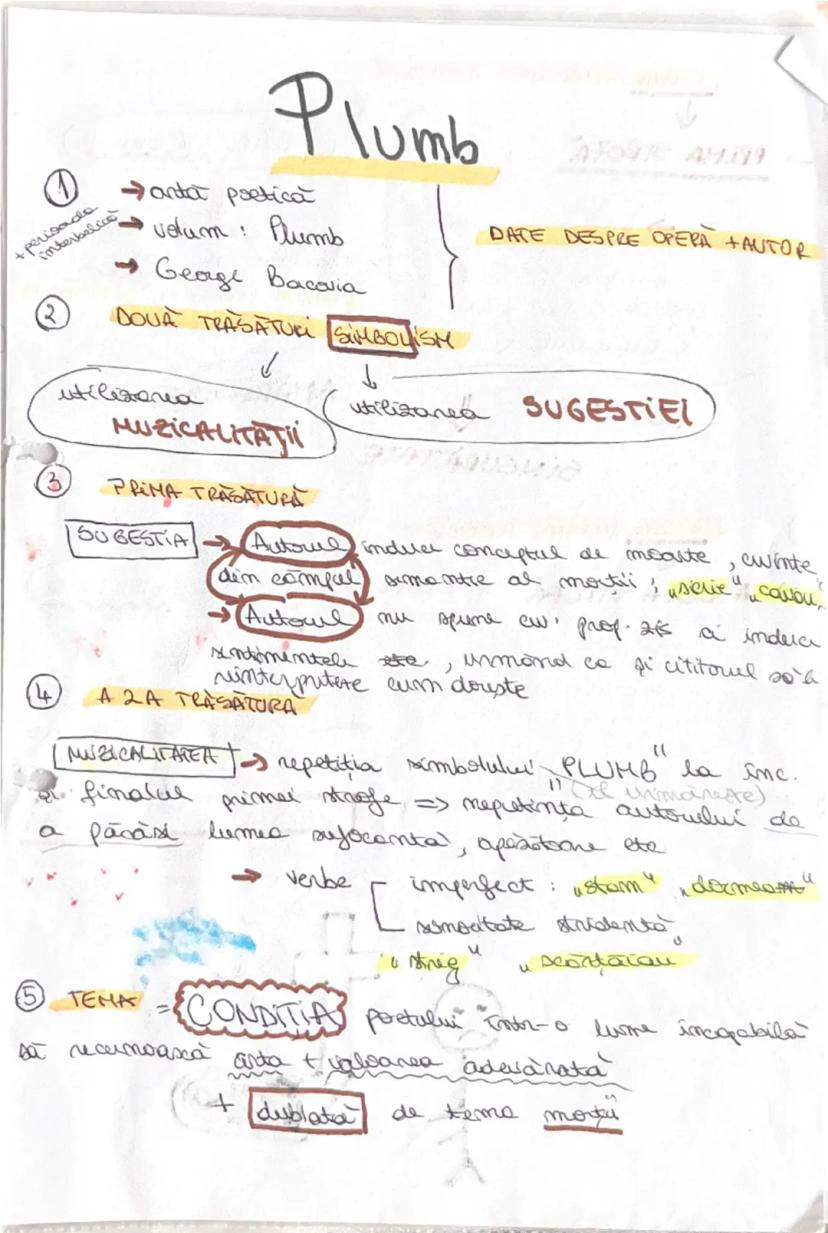 Plumb
① → artă poetică
+ perioada interbelică
→ volum: Plumb
→ George Bacovia
DATE DESPRE OPERĂ + AUTOR
② DOUĂ TRĂSĂTURI SIMBOLISM
utilizarea MUZICALITĂȚII
utilizarea SUGESTIEI
③ PRIMA TRĂSĂTURĂ
SUGESTIA → Autorul induce conceptul de moarte, cuvinte
din câmpul semantic al morții;
→ Autorul nu spune cu prop. ci induce
sentimentele etc, urmând ca și cititorul să-l
reinterpreteze cum dorește
④ A 2A TRĂSĂTURĂ
MUZICALITATEA → repetiția simbolului "PLUMB" la înc.
și finalul primei strofe (îl urmărește) => neputința autorului de
a părăsi lumea sufocantă, apăsătoare etc
→ verbe imperfect: "stam" "dormeau"
sonoritate stridentă
"strig" "scârțâiau"
⑤ TEMA = CONDIȚIA poetului într-o lume incapabilă
să recunoască arta + valoarea adevărată
+ dublată de tema morții